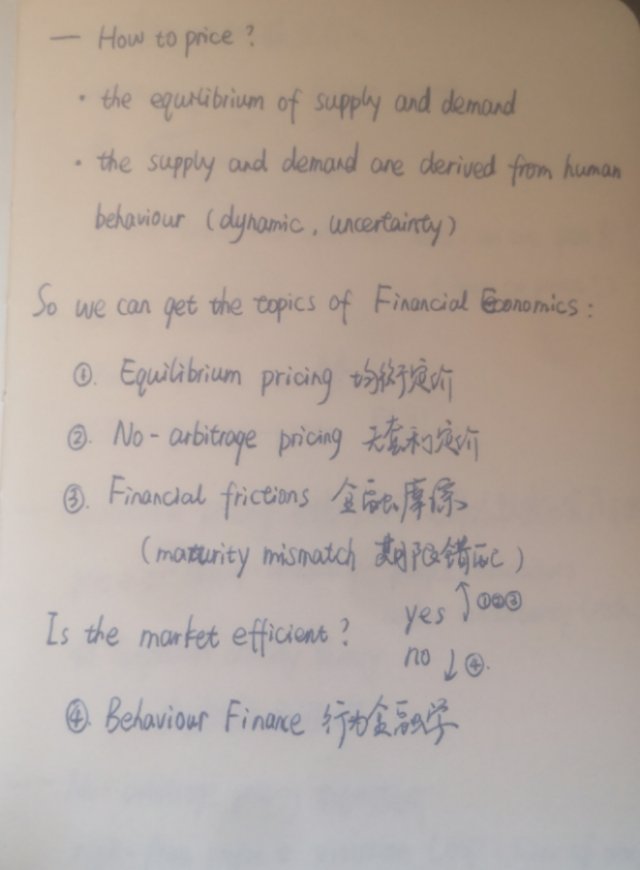 — How to price?
· the equilibrium of supply and demand
· the supply and demand are derived from human
behaviour (dynamic, uncertainty)
So we can get the topics of Financial Economics:
①. Equilibrium pricing 均衡定价
②. No-arbitrage pricing 无套利定价
③. Financial frictions 金融摩擦
(maturity mismatch 期限错配)
Is the market efficient? yes ↑①②③
no ↓④.
④. Behaviour Finance 行为金融学